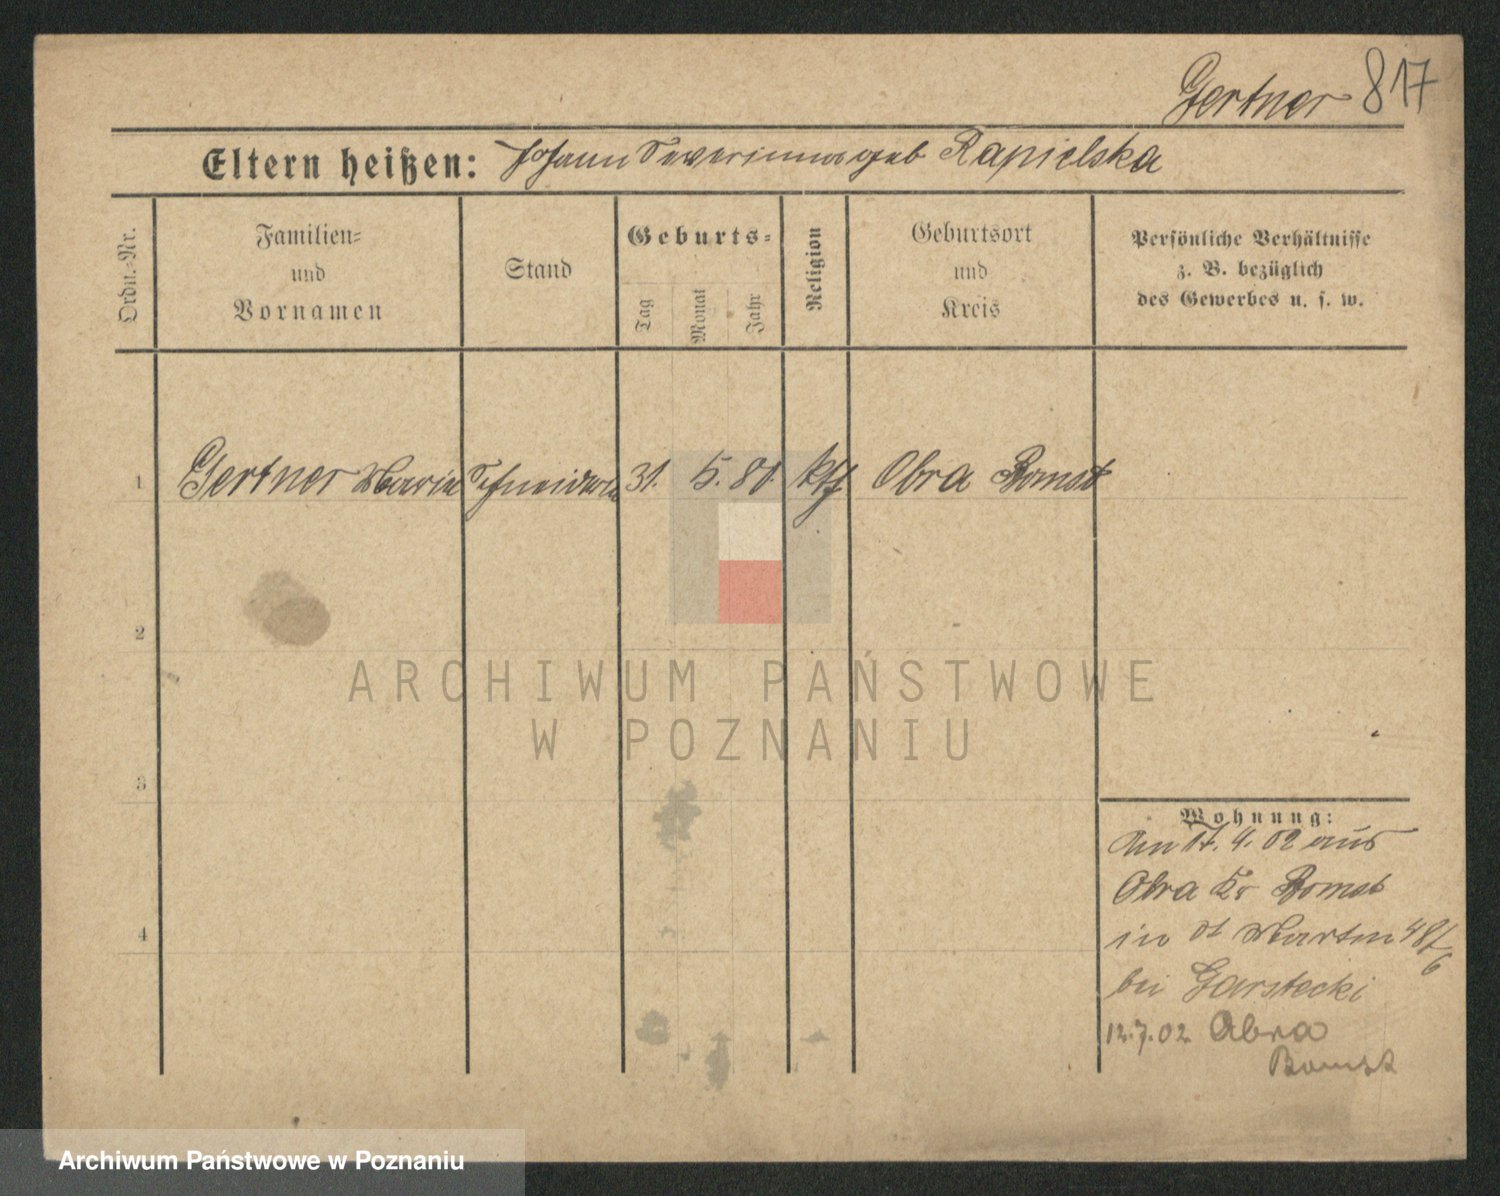 Gertner 817
Eltern heißen: Johann Severinna geb Rapielska
Ordn.-Nr.
Familien-
und
Vornamen
Stand
Geburts-
Tag
Monat
Jahr
Religion
Geburtsort
und
Kreis
Persönliche Verhältnisse
z. B. bezüglich
des Gewerbes u. s. w.
1 Gertner Maria Schneiderin 31. 5. 81. kth Obra Bomst
2
3
4
Wohnung:
Am 17. 4. 02 aus
Obra Kr Bomst
in St Martin 48/6
bei Garstecki
12.7.02 Obra
Bomst
ARCHIWUM PAŃSTWOWE
W POZNANIU
Archiwum Państwowe w Poznaniu